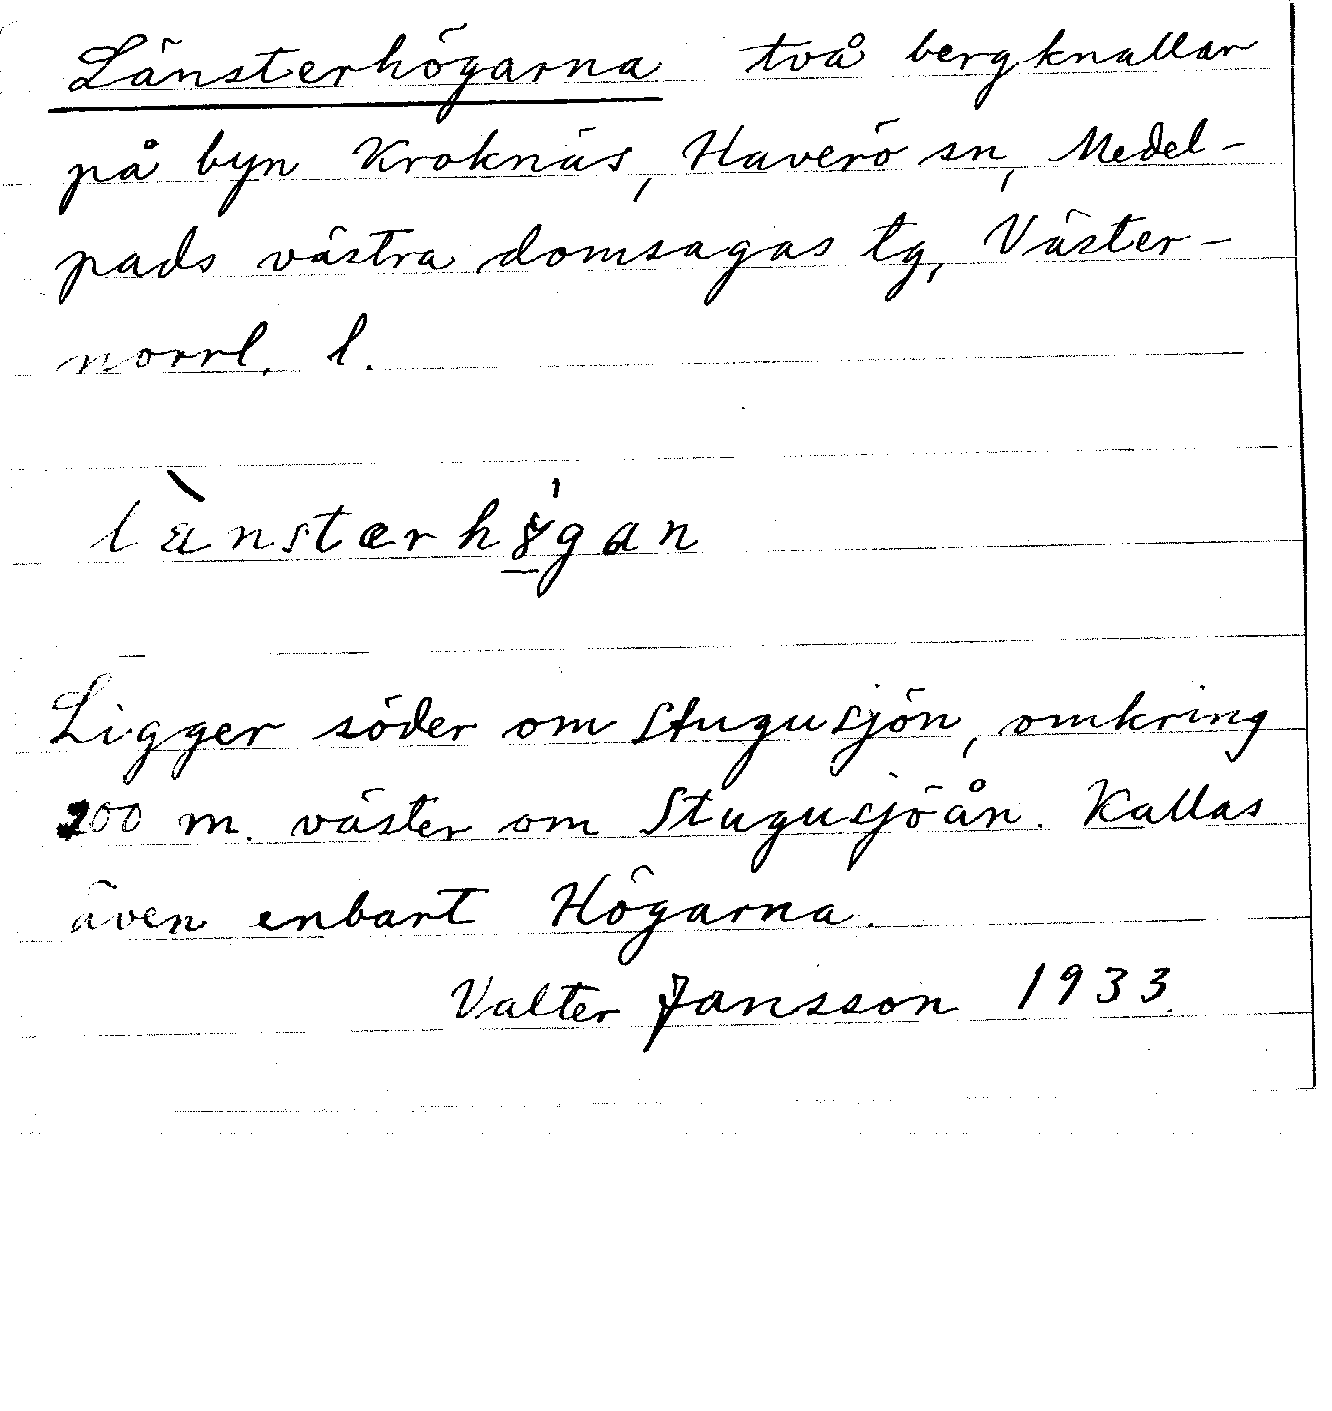 Länsterhögarna två bergknallar
på byn Kroknäs, Haverö sn, Medel-
pads västra domsagas tg, Väster-
norrl. l.
Ligger söder om Stugusjön, omkring
200 m. väster om Stugusjöån. Kallas
även enbart Högarna.
Valter Jansson 1933.